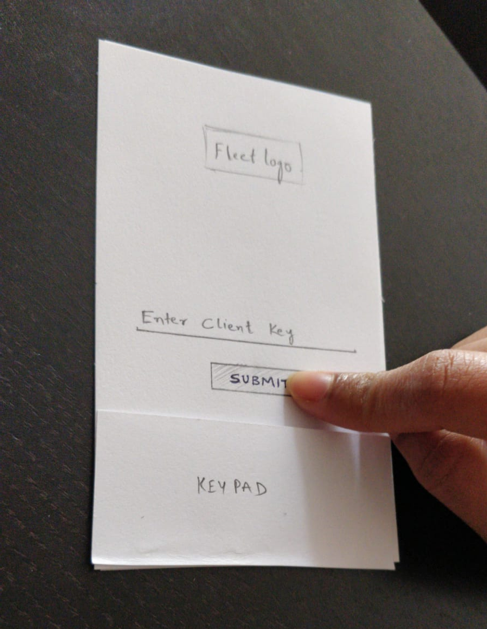 Fleet logo
Enter Client Key
SUBMIT
KEYPAD